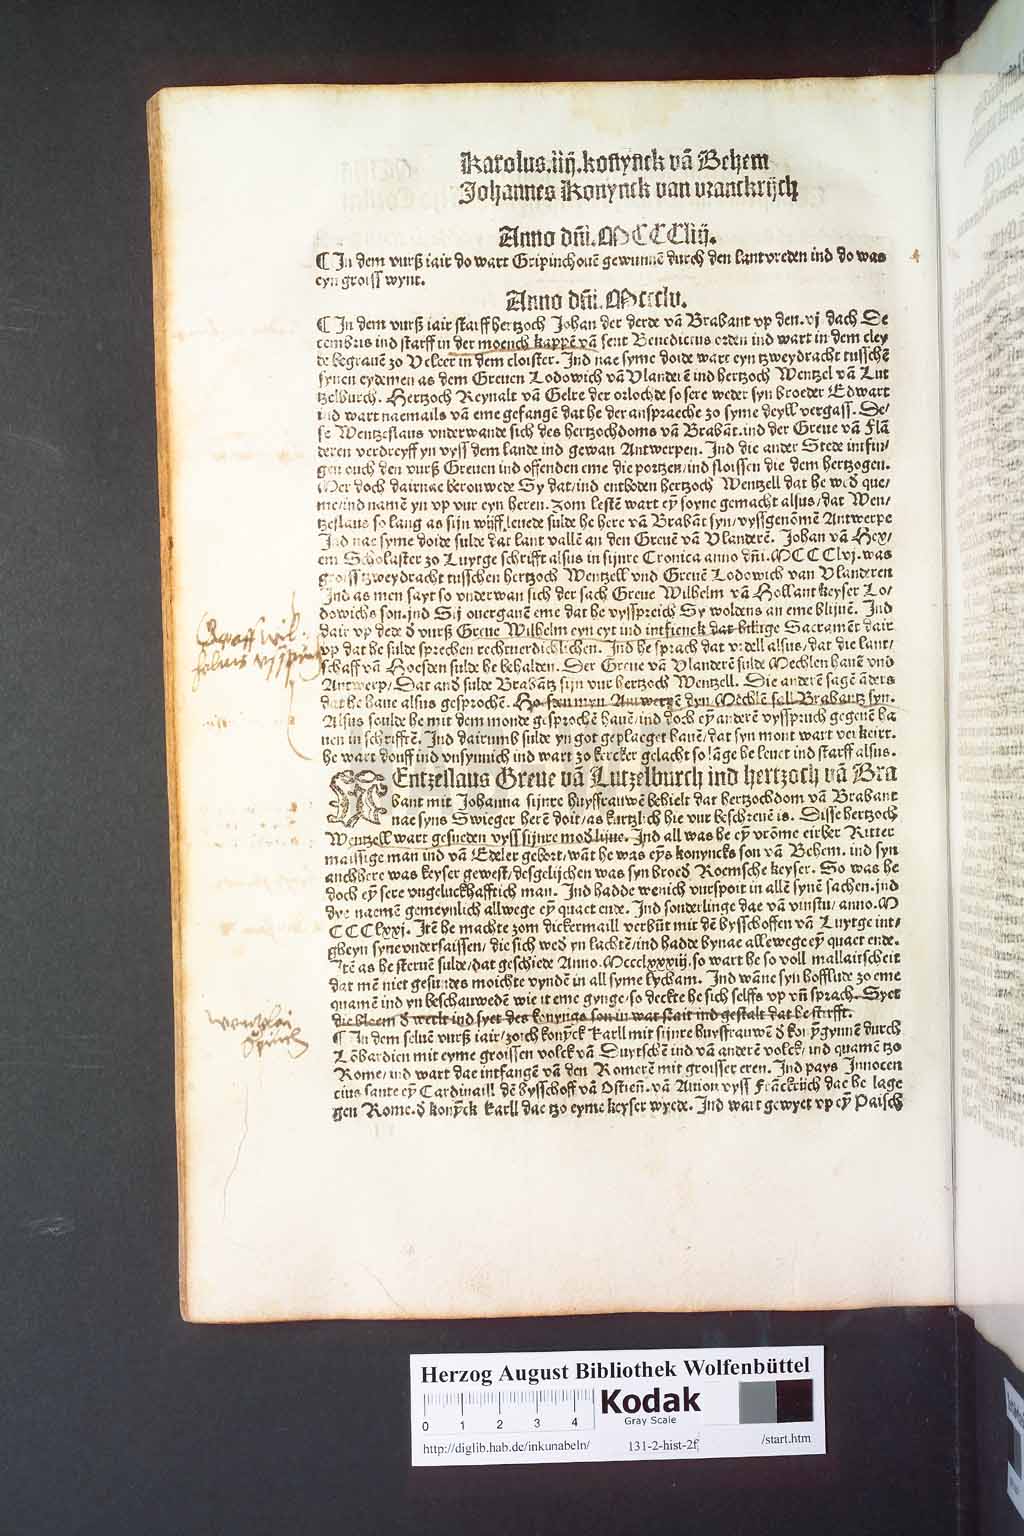 Karolus.iiij.konynck vā Behem
Johannes Konynck van vranckrijch
Anno dñi.MCCCliij.
¶ In dem vurß iair do wart Gripinchouē gewunnē durch den lantvreden ind do was
eyn groiss wynt.
Anno dñi.Mccclv.
¶ In dem vurß iair starff hertzoch Johan der derde vā Brabant vp den.vj dach De
cembris ind starff in der moench kappē vā sent Benedictus orden ind wart in dem cley
de begrauē zo Veleer in dem cloister. Ind nae syme doide wart eyn tzweydracht tusschē
synen eydemen as dem Greuen Lodowich vā Vlanderē ind hertzoch Wentzel vā Lut
tzelburch. Hertzoch Reynalt vā Gelre der orlochde so sere weder syn broeder Edwart
ind wart naemails vā eme gefangē dat he der anspraeche zo syme deyll vergass. De/
se Wentzeslaus vnderwande sich des hertzochdoms vā Brabāt.ind der Greue vā Flā
deren verdreyff yn vyss dem lande ind gewan Antwerpen. Ind die ander Stede intfin/
gen ouch den vurß Greuen ind offenden eme die portzen/ind sloissen die dem hertzogen.
Mer doch dairnae berouwede Sy dat/ind entboden hertzoch Wentzell dat he wed̄ que/
me/ind namē yn vp vur eyn heren. Zom lestē wart eȳ soyne gemacht alsus/dat Wen/
tzeslaus so lang as sijn wijff leuede sulde he here vā Brabāt syn/vyssgenōmē Antwerpe
Ind nae syme doide sulde dat lant vallē an den Greuē vā Vlanderē. Johan vā Hox/
em Scholaster zo Luytge schrifft alsus in sijnre Cronica anno dñi.MCCClvj.was
groiss tzweydracht tusschen hertzoch Wentzell vnd Greuē Lodowich van Vlanderen
Ind as men sayt so vnderwan sich der sach Greue Wilhelm vā Hollant keyser Lo/
dowichs son.ind Sij ouergauē eme dat he vysspreich Sy woldens an eme blijuē. Ind
dair vp dede d̄ vurß Greue Wilhelm eyn eyt ind intfienck dat hillige Sacramēt dair
vp dat he sulde sprechen rechtuerdichlichen. Ind he sprach dat vrdell alsus/dat die lant/
schaff vā Hoesden sulde he behalden. Der Greue vā Vlanderē sulde Mechlen hauē vnd
Antwerp/Dat and̄ sulde Brabātz sijn vur hertzoch Wentzell. Die anderē sagē āders
dat he haue alsus gesprochē. Hoesden myn Antwerpē dyn Mechlē sall Brabantz syn.
Alsus soulde he mit dem monde gesprochē hauē/ind doch eȳ anderē vysspruch gegeuē ha
uen in schrifftē. Ind dairumb sulde yn got geplaeget hauē/dat syn mont wart verkeirt.
he wart douff ind vnsynnich ind wart zo kercker gelacht so lāge he leuet ind starff alsus.
WEntzellaus Greue vā Lutzelburch ind hertzoch vā Bra
bant mit Johanna sijnre huyssfrauwē behielt dat hertzochdom vā Brabant
nae syns Swieger herē doit/as kurtzlich hie vur beschreuē is. Disse hertzoch
Wentzell wart gesneden vyss sijnre mod̄ lijue. Ind all was he eȳ vrōme eirber Ritter
maissige man ind vā Edeler gebort/wāt he was eȳs konyncks son vā Behem. ind syn
anchhere was keyser gewest/desgelijchen was syn broed̄ Roemsche keyser. So was he
doch eȳ sere vngeluckhafftich man. Ind hadde wenich vurspoit in allē synē sachen.ind
dye naemē gemeynlich allwege eȳ quaet ende. Ind sonderlinge dae vā vinstu/anno.M
CCClxxj. Itē he machte zom dickermaill verbūt mit dē bysschoffen vā Luytge int/
gheyn syne vndersaissen/die sich wed̄ yn lachtē/ind hadde bynae allewege eȳ quaet ende.
Itē as he steruē sulde/dat geschiede Anno.Mccclxxxiij.so wart he so voll mallaitscheit
dat mē niet gesundes moichte vyndē in all syme lycham. Ind wāne syn hofflude zo eme
quamē ind yn beschauwedē wie it eme gynge/so deckte he sich selffs vp vñ sprach. Syet
die bloem d̄ werlt ind syet des konyngs son in wat stait ind gestalt dat he stirfft.
¶ In dem seluē vurß iair/zoich konȳck Karll mit sijnre huysfrauwē d̄ konȳgynnē durch
Lōbardien mit eyme groissen volck vā Duytschē ind vā anderē volck/ind quamē tzo
Rome/ind wart dae intfangē vā den Romerē mit groisser eren. Ind pays Innocen
cius sante eȳ Cardinaill dē bysschoff vā Ostieñ.vā Auion vyss Franckrijch dae he lage
gen Rome.d̄ konȳck Karll dae tzo eyme keyser wyede. Ind wart gewyet vp eȳ Paisch
Graff wil-
helms vysspruch
wentzlai
Spruch
Herzog August Bibliothek Wolfenbüttel
0 1 2 3 4
Kodak
Gray Scale
http://diglib.hab.de/inkunabeln/ 131-2-hist-2f /start.htm